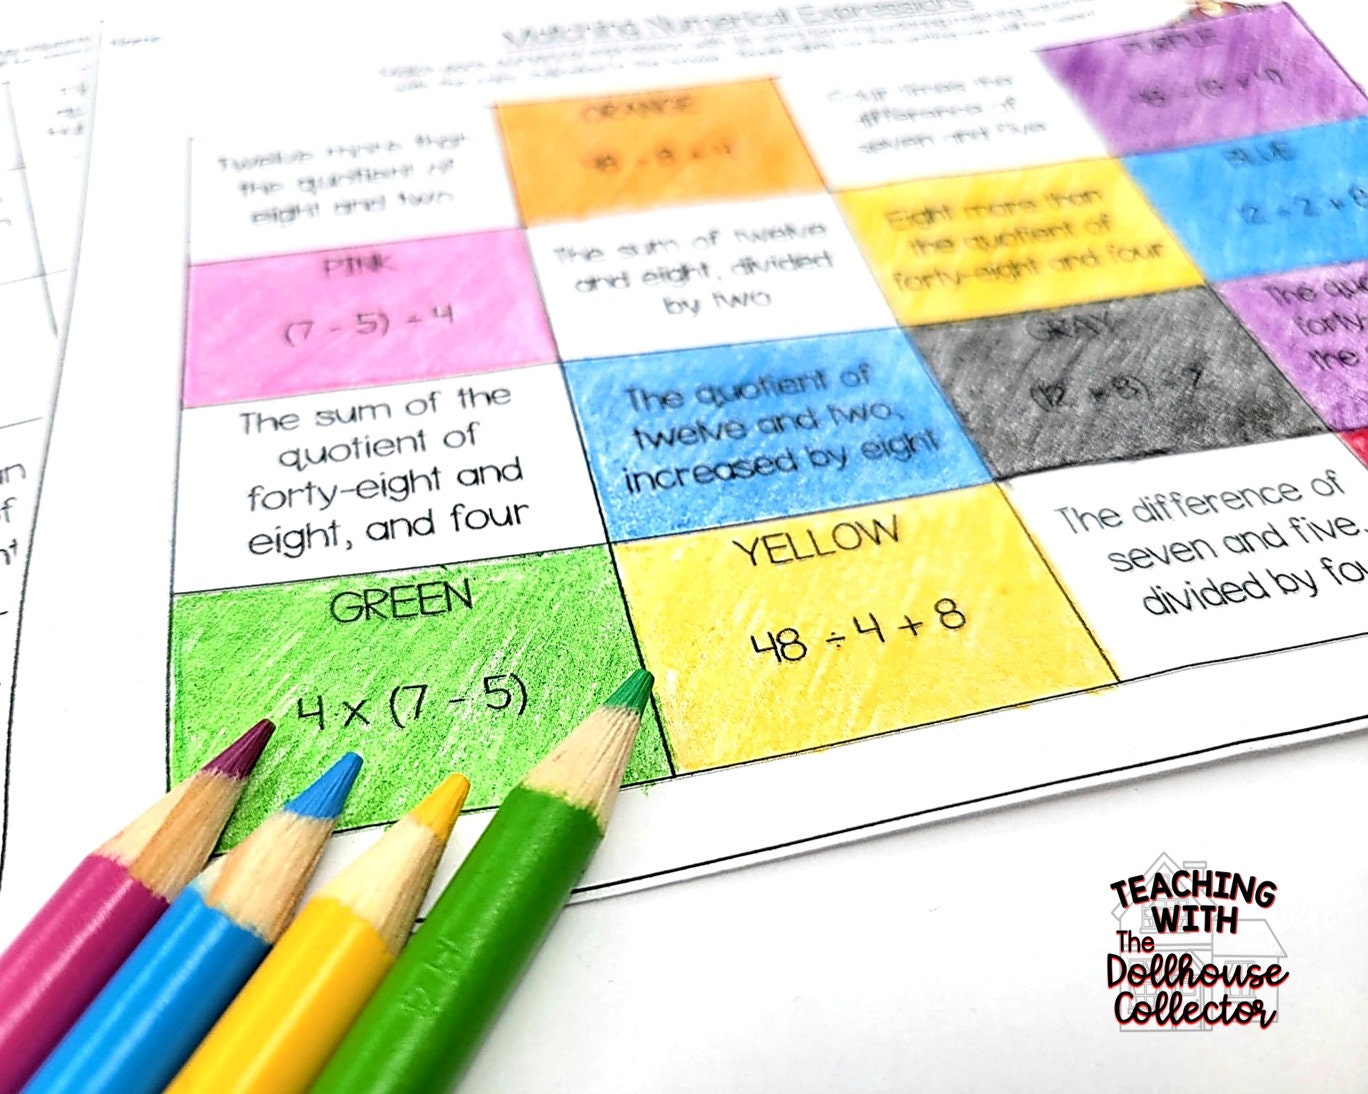 Matching Numerical Expressions
Twelve more than
the quotient of
eight and two
ORANGE
difference of
seven and five
PURPLE
PINK
(7 - 5) ÷ 4
The sum of twelve
and eight, divided
by two
Eight more than
the quotient of
forty-eight and four
BLUE
12 ÷ 2 + 8
The sum of the
quotient of
forty-eight and
eight, and four
The quotient of
twelve and two,
increased by eight
GRAY
(12 + 8) ÷ 2
The
forty-
the
GREEN
4 x (7 - 5)
YELLOW
48 ÷ 4 + 8
The difference of
seven and five,
divided by
TEACHING
WITH
The
Dollhouse
Collector